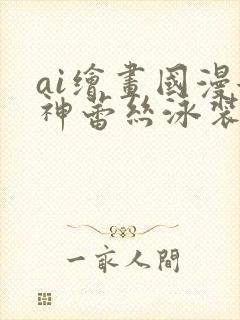 ai繪畫國漫
神蕾絲泳裝
一家人間